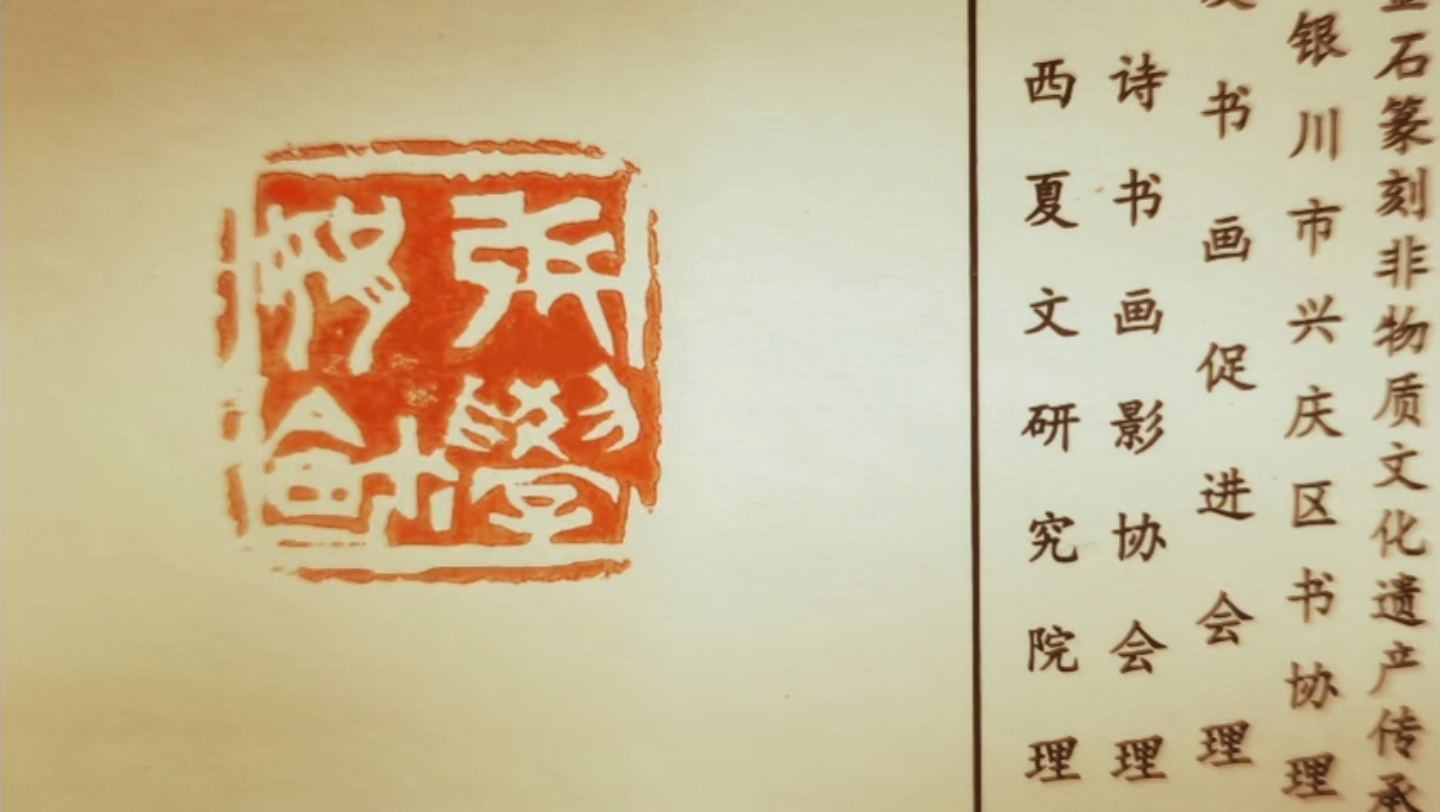 金石篆刻非物质文化遗产传承
银川市兴庆区书协理
书画促进会理
诗书画影协会理
西夏文研究院理